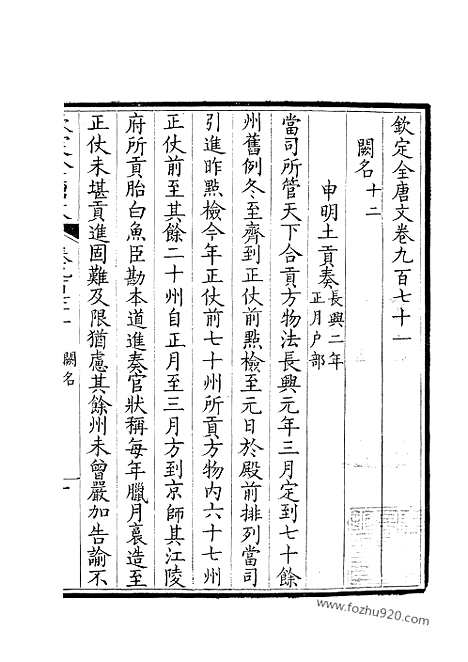 欽定全唐文卷九百七十一
闕名十二
申明土貢奏長興二年正月戶部
當司所管天下合貢方物法長興元年三月定到七十餘
州舊例冬至齊到正仗前點檢至元日於殿前排列當司
引進昨點檢今年正仗前七十州所貢方物內六十七州
正仗前至其餘二十州自正月至三月方到京師其江陵
府所貢胎白魚臣勘本道進奏官狀稱每年臘月裛造至
正仗未堪貢進固難及限猶慮其餘州未曾嚴加告諭不
闕名
一
www.fozhu920.com